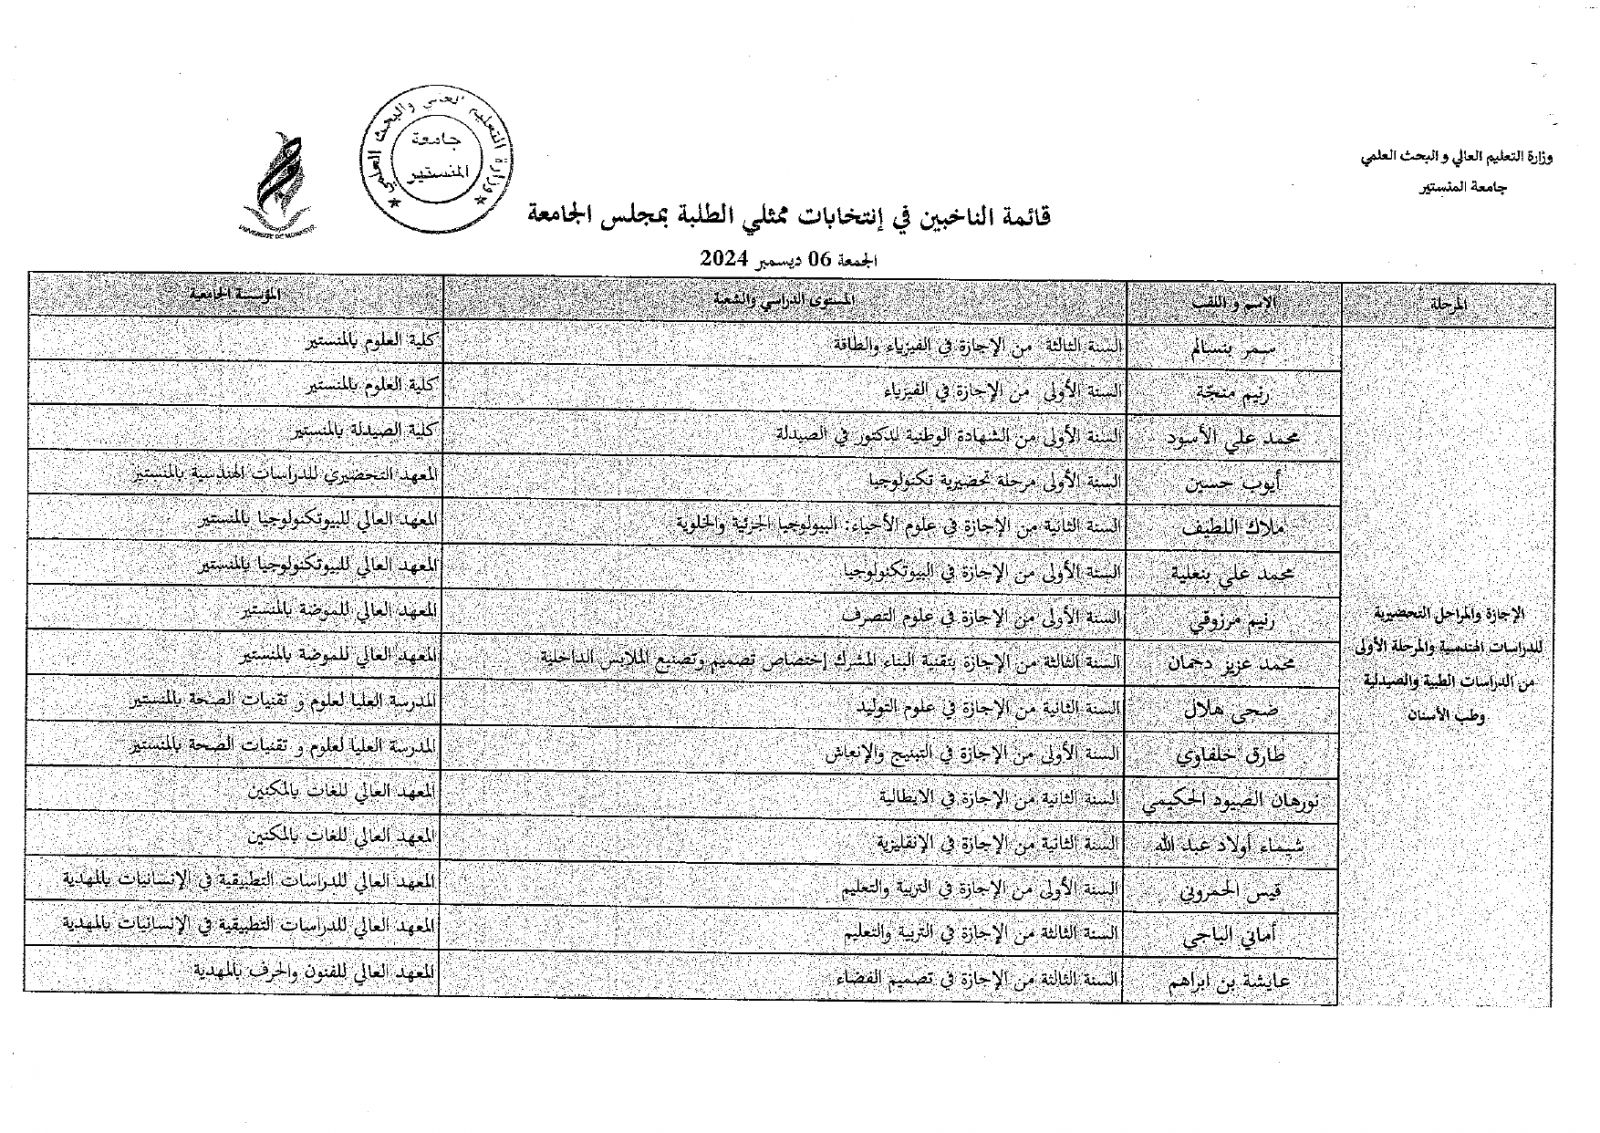 وزارة التعليم العالي و البحث العلمي
جامعة المنستير
وزارة التعليم العالي والبحث العلمي
جامعة
المنستير
قائمة الناخبين في إنتخابات ممثلي الطلبة بمجلس الجامعة
الجمعة 06 ديسمبر 2024
المرحلة الإسم و اللقب المستوى الدراسي والشعبة المؤسسة الجامعية
الإجازة والمراحل التحضيرية
للدراسات الهندسية والمرحلة الأولى
من الدراسات الطبية والصيدلية
وطب الأسنان
سمر بنسالم السنة الثالثة من الإجازة في الفيزياء والطاقة كلية العلوم بالمنستير
رنيم منجّة السنة الأولى من الإجازة في الفيزياء كلية العلوم بالمنستير
محمد علي الأسود السنة الأولى من الشهادة الوطنية لدكتور في الصيدلة كلية الصيدلة بالمنستير
أيوب حسين السنة الأولى مرحلة تحضيرية تكنولوجيا المعهد التحضيري للدراسات الهندسية بالمنستير
ملاك اللطيف السنة الثانية من الإجازة في علوم الأحياء: البيولوجيا الجزئية والخلوية المعهد العالي للبيوتكنولوجيا بالمنستير
محمد علي بنعلية السنة الأولى من الإجازة في البيوتكنولوجيا المعهد العالي للبيوتكنولوجيا بالمنستير
رنيم مرزوقي السنة الأولى من الإجازة في علوم التصرف المعهد العالي للموضة بالمنستير
محمد عزيز دحمان السنة الثالثة من الإجازة بتقنية البناء المشترك إختصاص تصميم وتصنيع الملابس الداخلية المعهد العالي للموضة بالمنستير
ضحى هلال السنة الثانية من الإجازة في علوم التوليد المدرسة العليا لعلوم و تقنيات الصحة بالمنستير
طارق خلفاوي السنة الأولى من الإجازة في التبنيج والإنعاش المدرسة العليا لعلوم و تقنيات الصحة بالمنستير
نورهان الصيود الحكيمي السنة الثانية من الإجازة في الايطالية المعهد العالي للغات بالمكنين
شيماء أولاد عبد الله السنة الثانية من الإجازة في الإنقليزية المعهد العالي للغات بالمكنين
قيس الحمروني السنة الأولى من الإجازة في التربية والتعليم المعهد العالي للدراسات التطبيقية في الإنسانيات بالمهدية
أماني الباجي السنة الثالثة من الإجازة في التربية والتعليم المعهد العالي للدراسات التطبيقية في الإنسانيات بالمهدية
عايشة بن ابراهم السنة الثالثة من الإجازة في تصميم الفضاء المعهد العالي للفنون والحرف بالمهدية